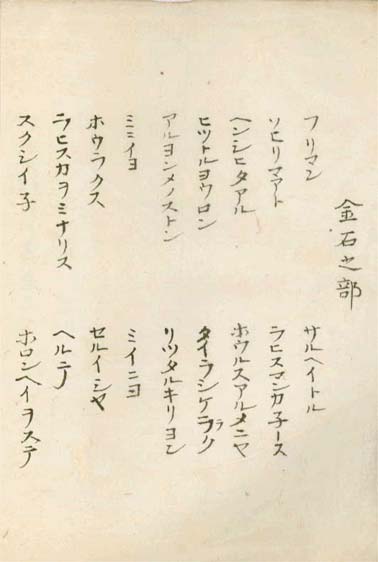 金石之部
フリマン
サルヘイトル
ソヒリマアト
ラヒスマンカ子ース
ヘンシヒタアル
ホウルスアルメニヤ
ヒツトルヨウロン
タイラシケラク
ラ
アルヨンメノストン
リツタルキリヨン
ミミイヨ
ミイニヨ
ホウラクス
セルイシヤ
ラヒスカヲミナリス
ヘルニー
スクシイ子
ホロンヘイヲステ